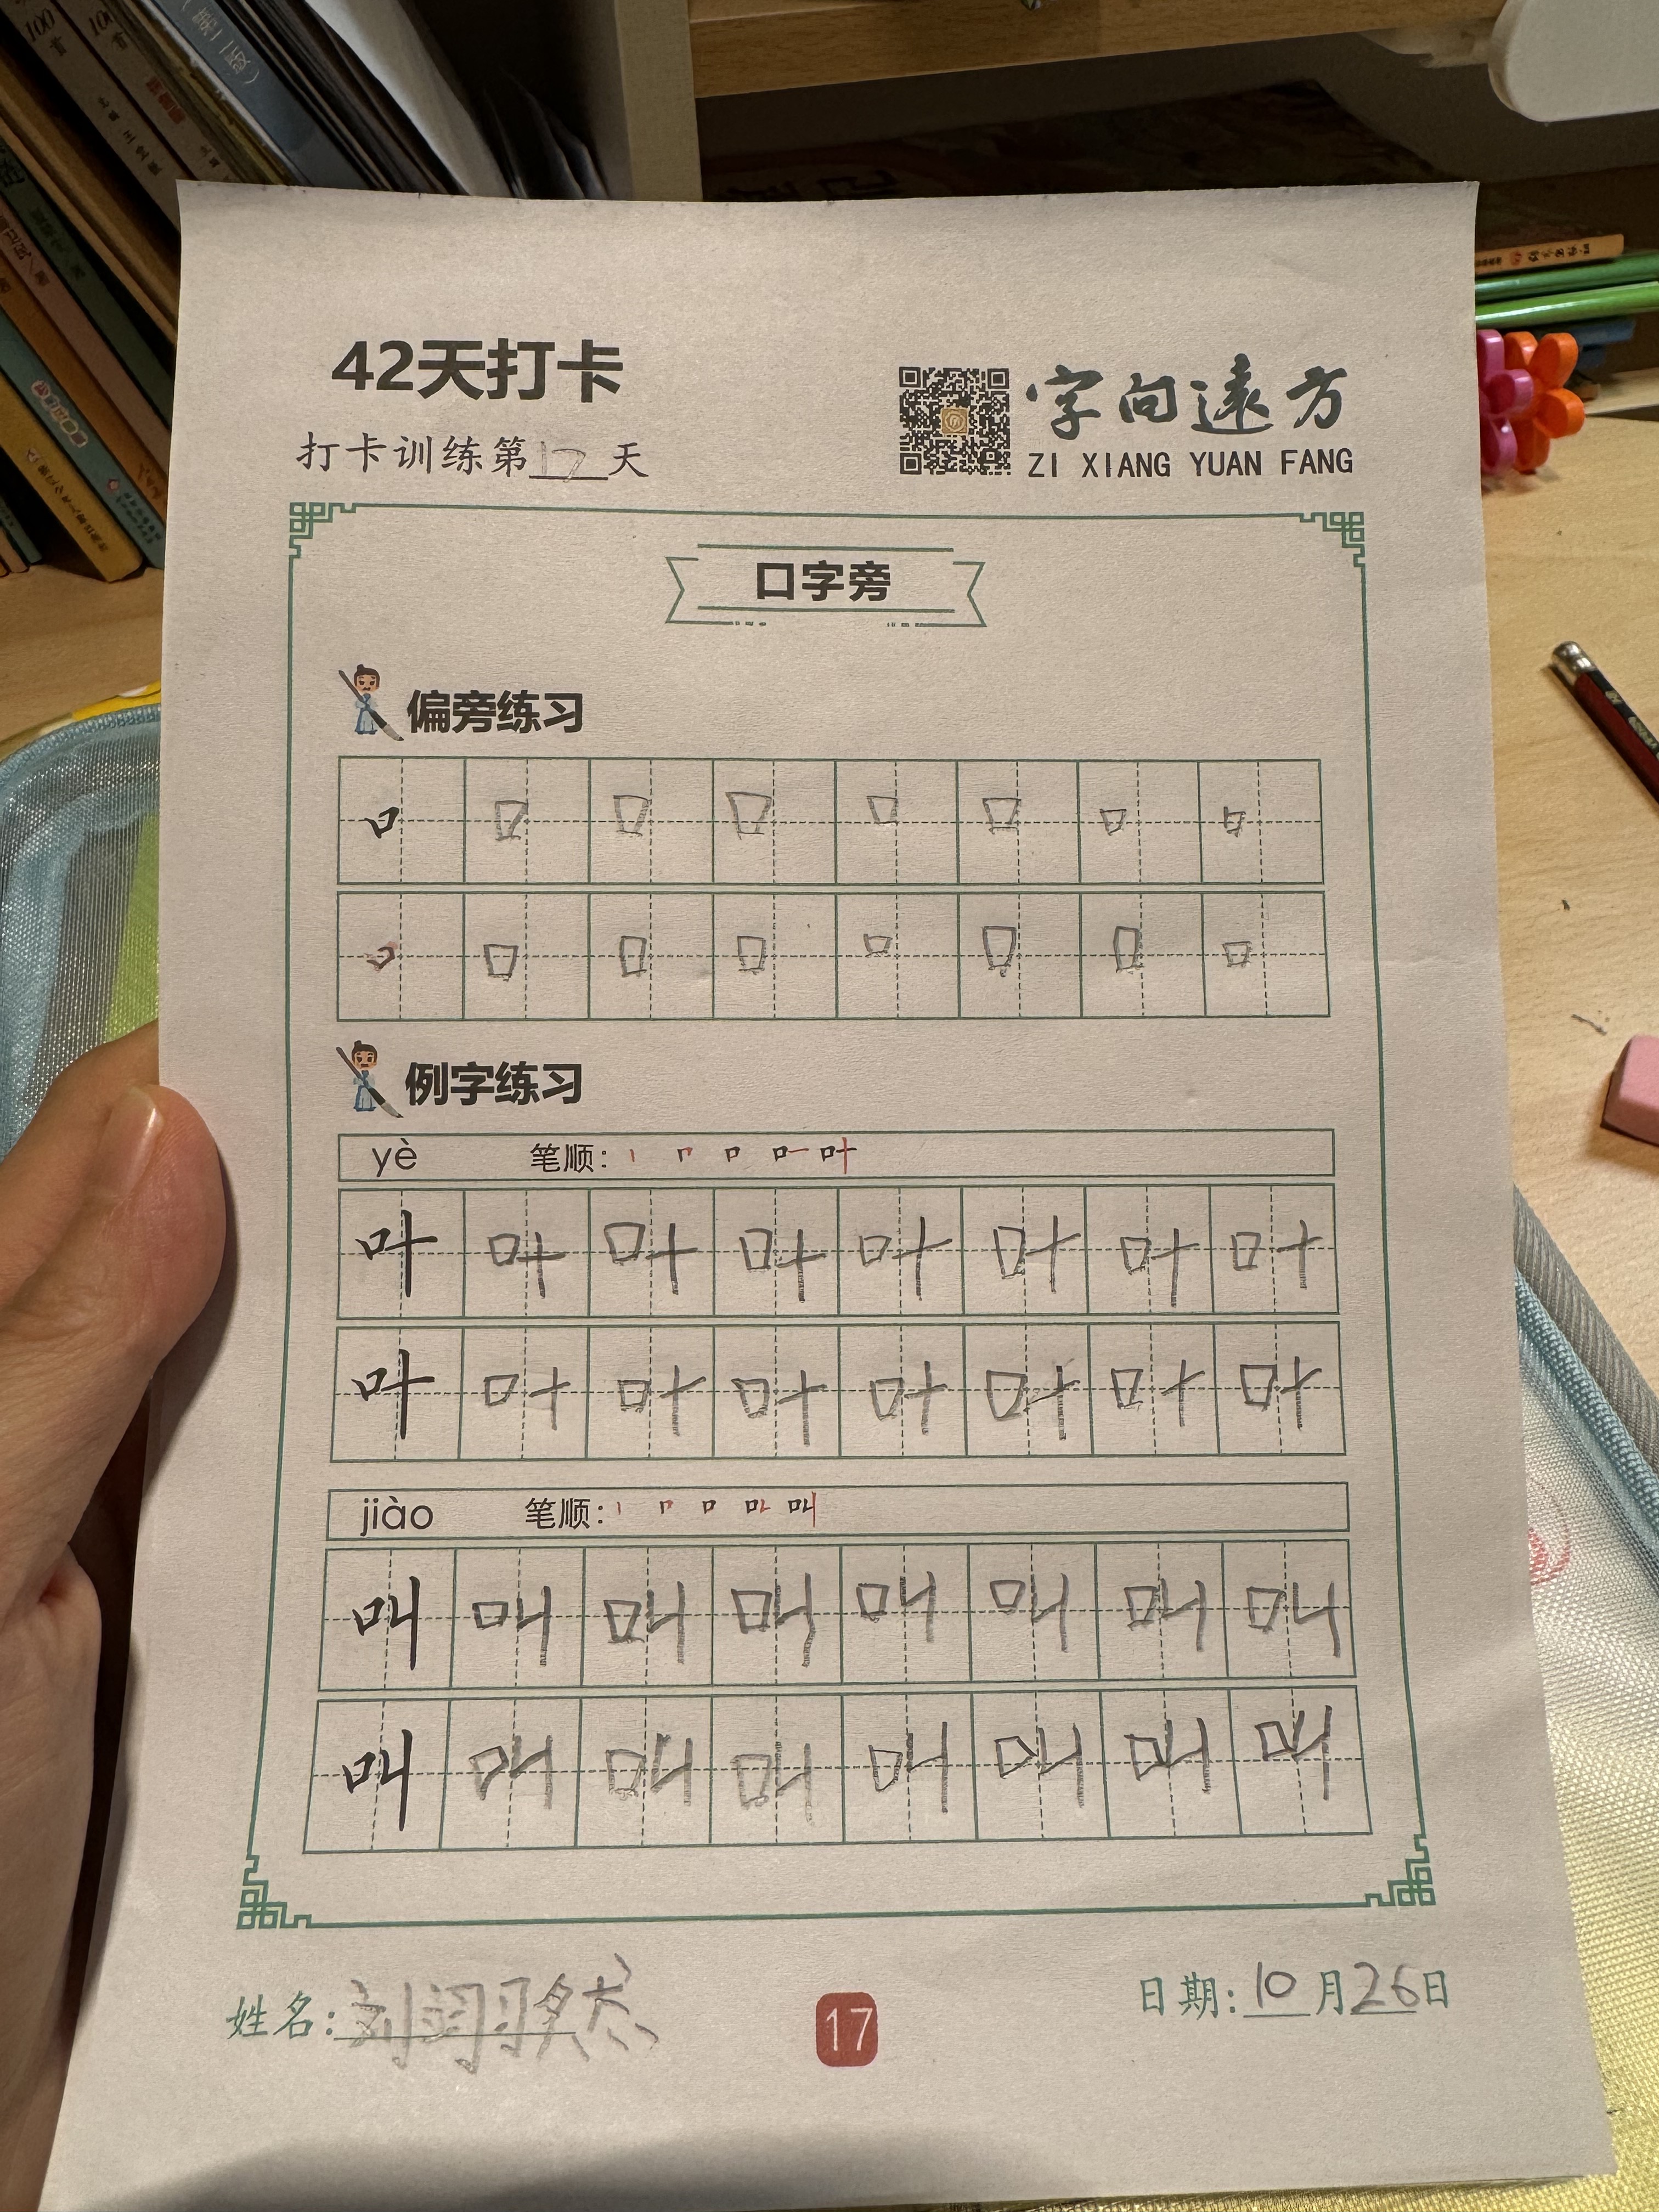 42天打卡
打卡训练第17天
字向遠方
ZI XIANG YUAN FANG
口字旁
偏旁练习
口 口 口 口 口 口 口 口
口 口 口 口 口 口 口 口
例字练习
yè 笔顺:
叶 叶 叶 叶 叶 叶 叶 叶
叶 叶 叶 叶 叶 叶 叶 叶
jiào 笔顺:
叫 叫 叫 叫 叫 叫 叫 叫
叫 叫 叫 叫 叫 叫 叫 叫
姓名:刘润
17
日期:10月26日